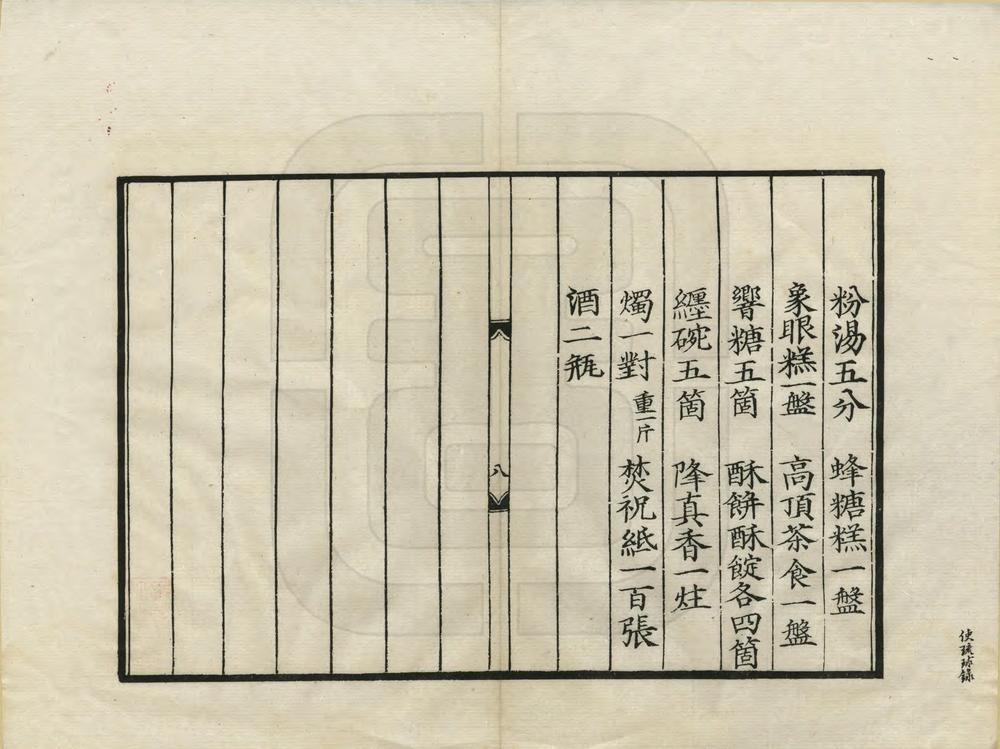 粉湯五分　蜂糖糕一盤
象眼糕一盤　高頂茶食一盤
響糖五箇　酥餅酥餣各四箇
纏碗五箇　降真香一炷
燭一對重一斤　焚祝紙一百張
酒二瓶
八
使琉球錄